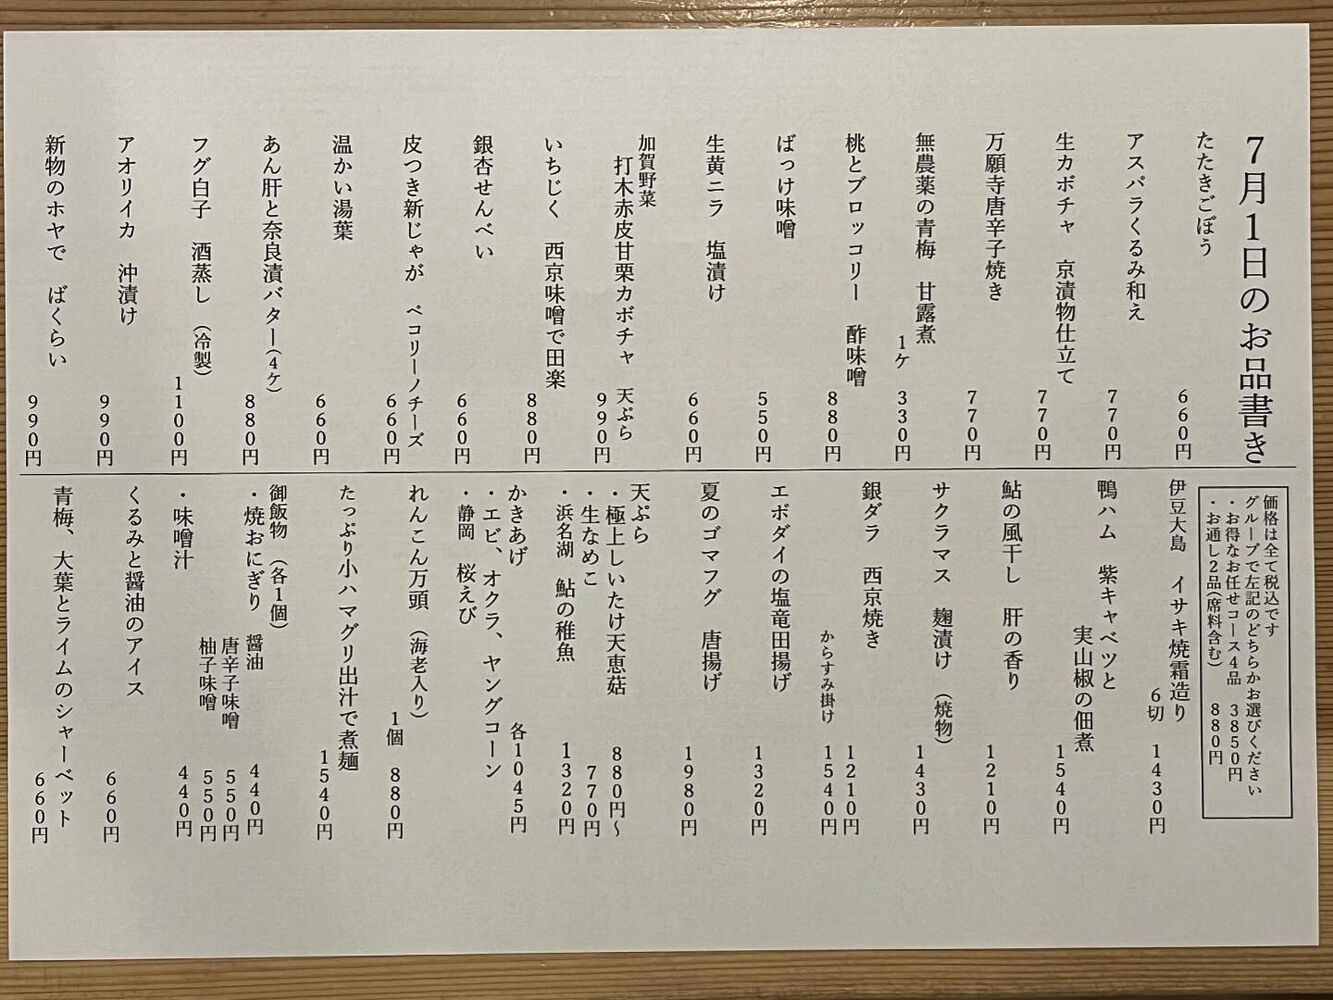 7月1日のお品書き
たたきごぼう 660円
アスパラくるみ和え 770円
生カボチャ 京漬物仕立て 770円
万願寺唐辛子焼き 770円
無農薬の青梅 甘露煮
1ケ 330円
桃とブロッコリー 酢味噌 880円
ばっけ味噌 550円
生黄ニラ 塩漬け 660円
加賀野菜
打木赤皮甘栗カボチャ 天ぷら 990円
いちじく 西京味噌で田楽 880円
銀杏せんべい 660円
皮つき新じゃが ペコリーノチーズ 660円
温かい湯葉 660円
あん肝と奈良漬バター(4ケ) 880円
フグ白子 酒蒸し (冷製) 1100円
アオリイカ 沖漬け 990円
新物のホヤで ばくらい 990円
価格は全て税込です
グループで左記のどちらかお選びください
・お得なお任せコース4品 3850円
・お通し2品(席料含む) 880円
伊豆大島 イサキ焼霜造り
6切 1430円
鴨ハム 紫キャベツと
実山椒の佃煮 1540円
鮎の風干し 肝の香り 1210円
サクラマス 麹漬け (焼物) 1430円
銀ダラ 西京焼き 1210円
からすみ掛け 1540円
エボダイの塩竜田揚げ 1320円
夏のゴマフグ 唐揚げ 1980円
天ぷら
・極上しいたけ天恵菇 880円〜
・生なめこ 770円
・浜名湖 鮎の稚魚 1320円
かきあげ 各1045円
・エビ、オクラ、ヤングコーン
・静岡 桜えび
れんこん万頭 (海老入り)
1個 880円
たっぷり小ハマグリ出汁で煮麺 1540円
御飯物 (各1個)
・焼おにぎり 醤油 440円
唐辛子味噌 550円
柚子味噌 550円
・味噌汁 440円
くるみと醤油のアイス 660円
青梅、大葉とライムのシャーベット 660円